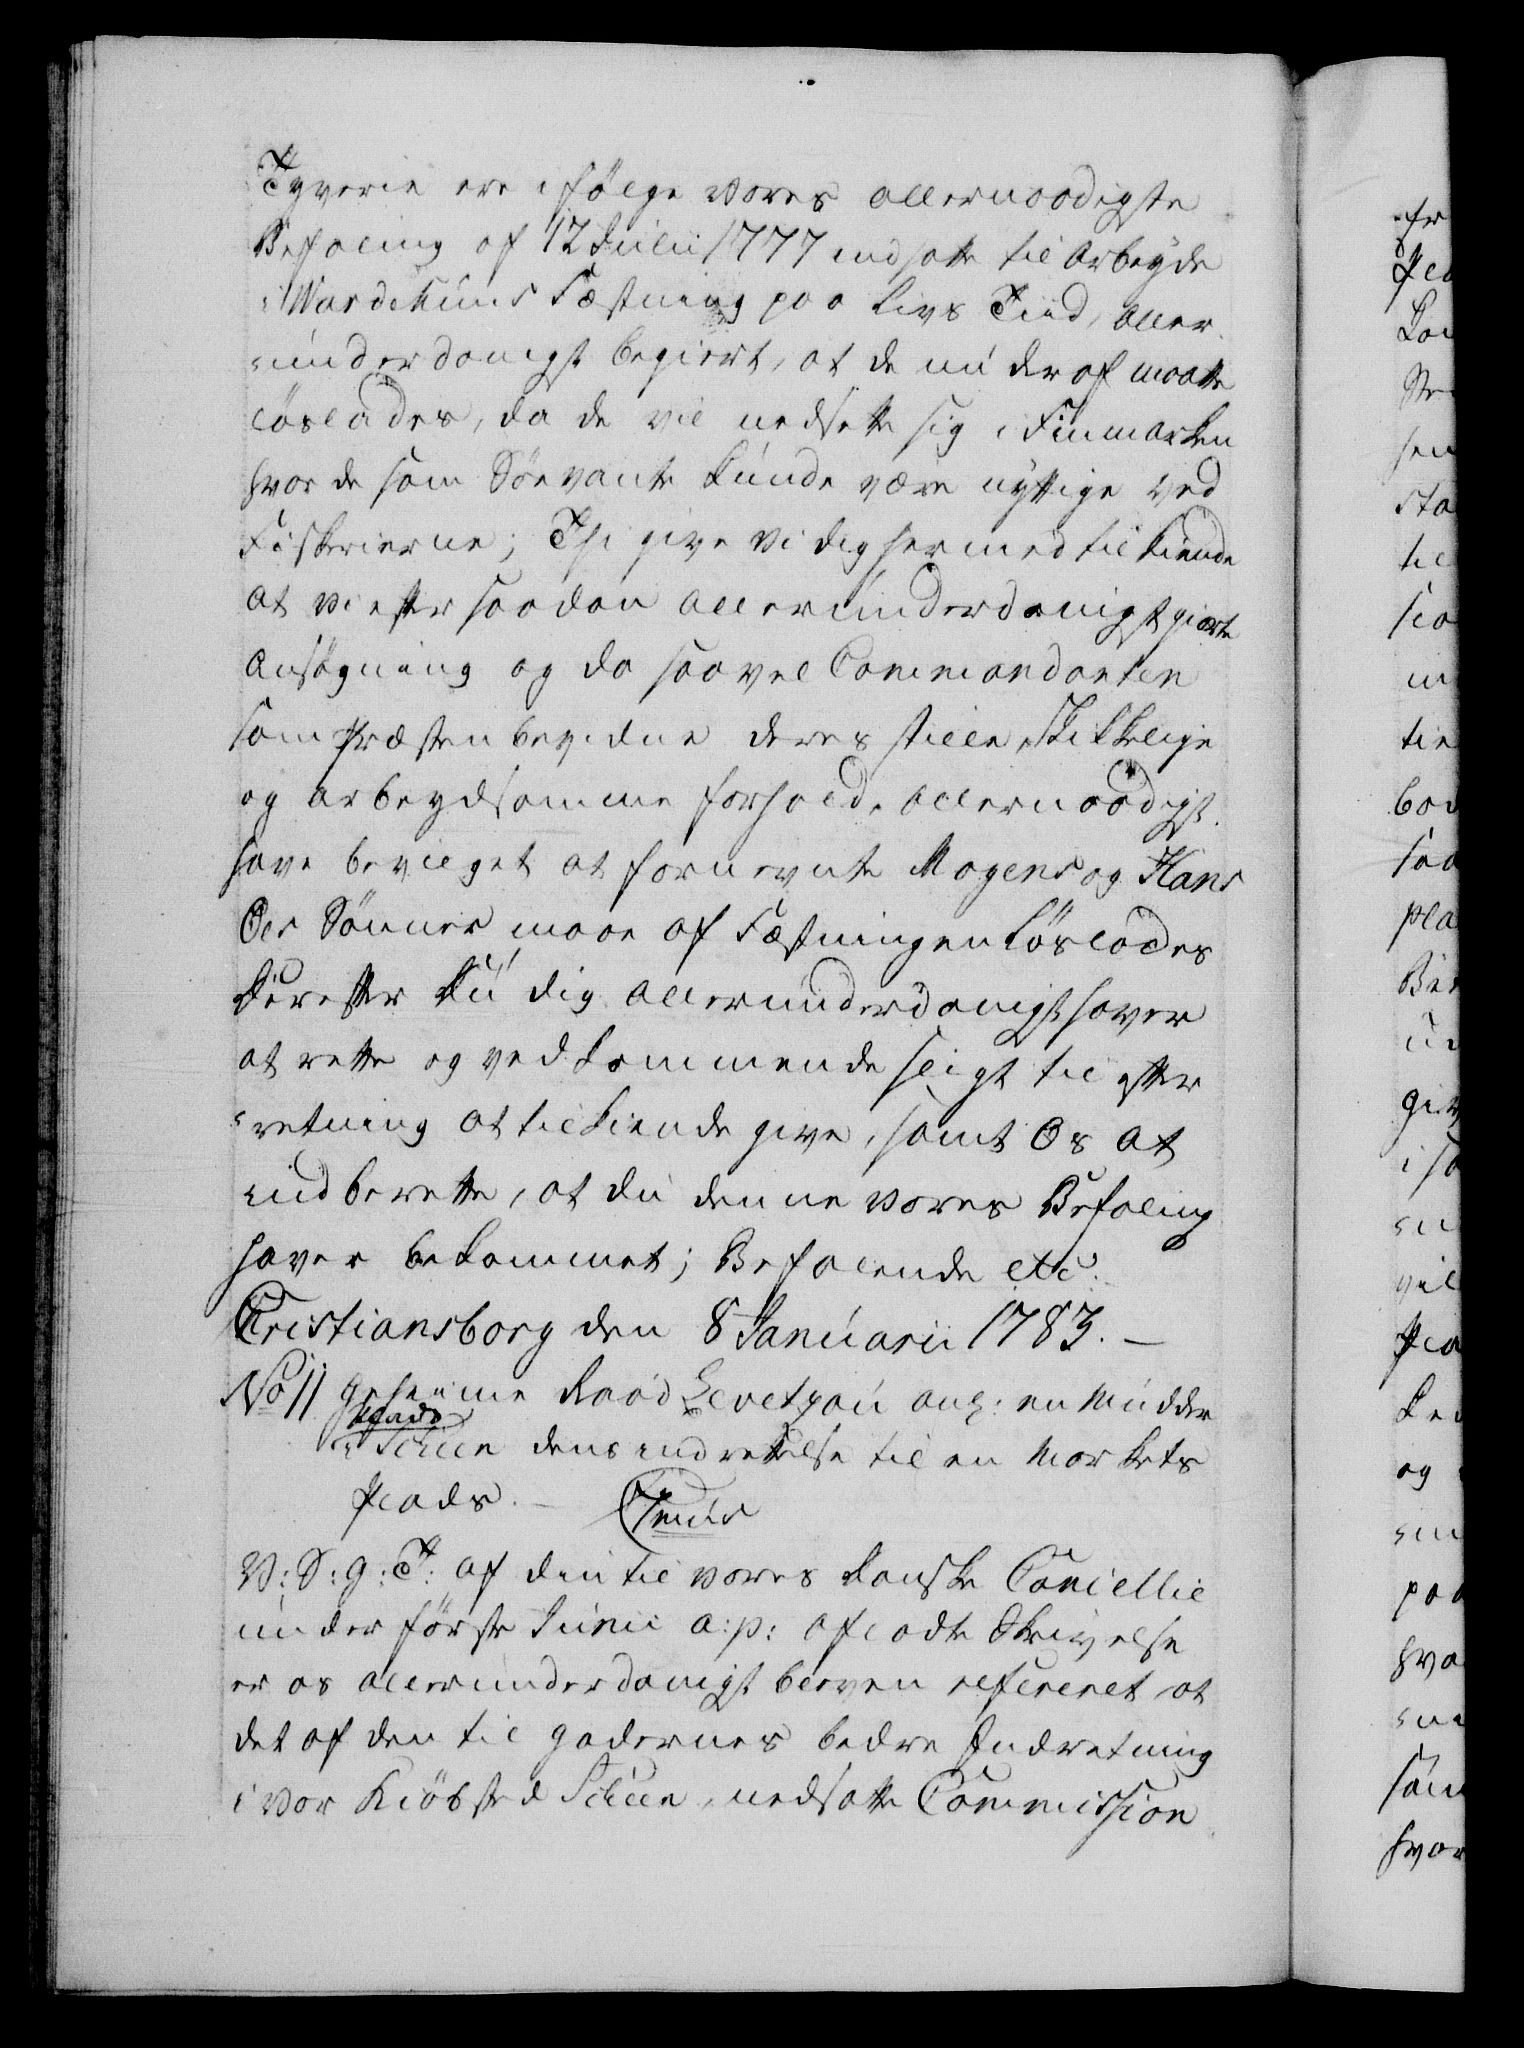 Tyverie ere i følge vores allernaadigste
Befaling af 12 Julii 1777 indsatte til Arbeyde
i Wardehuus Fæstning paa Livs Tiid, aller
underdanigst begiert, at de nu deraf maatte
løslades, da de vil nedsette sig i Finmarken
hvor de som Søevante kunde være nyttige ved
Fiskerierne; Thi give vi dig hermed til kiende
at vi efter saadan allerunderdanigst giorte
Ansøgning og da saavel Commandanten
som Præsten bevidne deres stille, skikkelige
og arbeydsomme forhold, allernaadigst
have bevilget at fornevnte Mogens og Hans
Ols Sønner maae af Fæstningen løslades
Derefter du dig allerunderdanigst haver
at rette og vedkommende sligt til efter
retning at tilkiende give, samt Os at
indberette, at du denne vores Befaling
haver bekommet; Befalende etc.
Cristiansborg den 8 Januarii 1783. —
No 11 Geheime Raad Levetzau ang: en Mudder
Plads
i Schien dens indrettelse til en Markets
Plads. —
V: S: G: T: af din til vores danske Cancellie
under første Junii a: p: afladte Skrivelse
er os allerunderdanigst bleven refereret at
det af den til gadernes bedre Indretning
i vor Kiøbsted Schien, nedsatte Commission